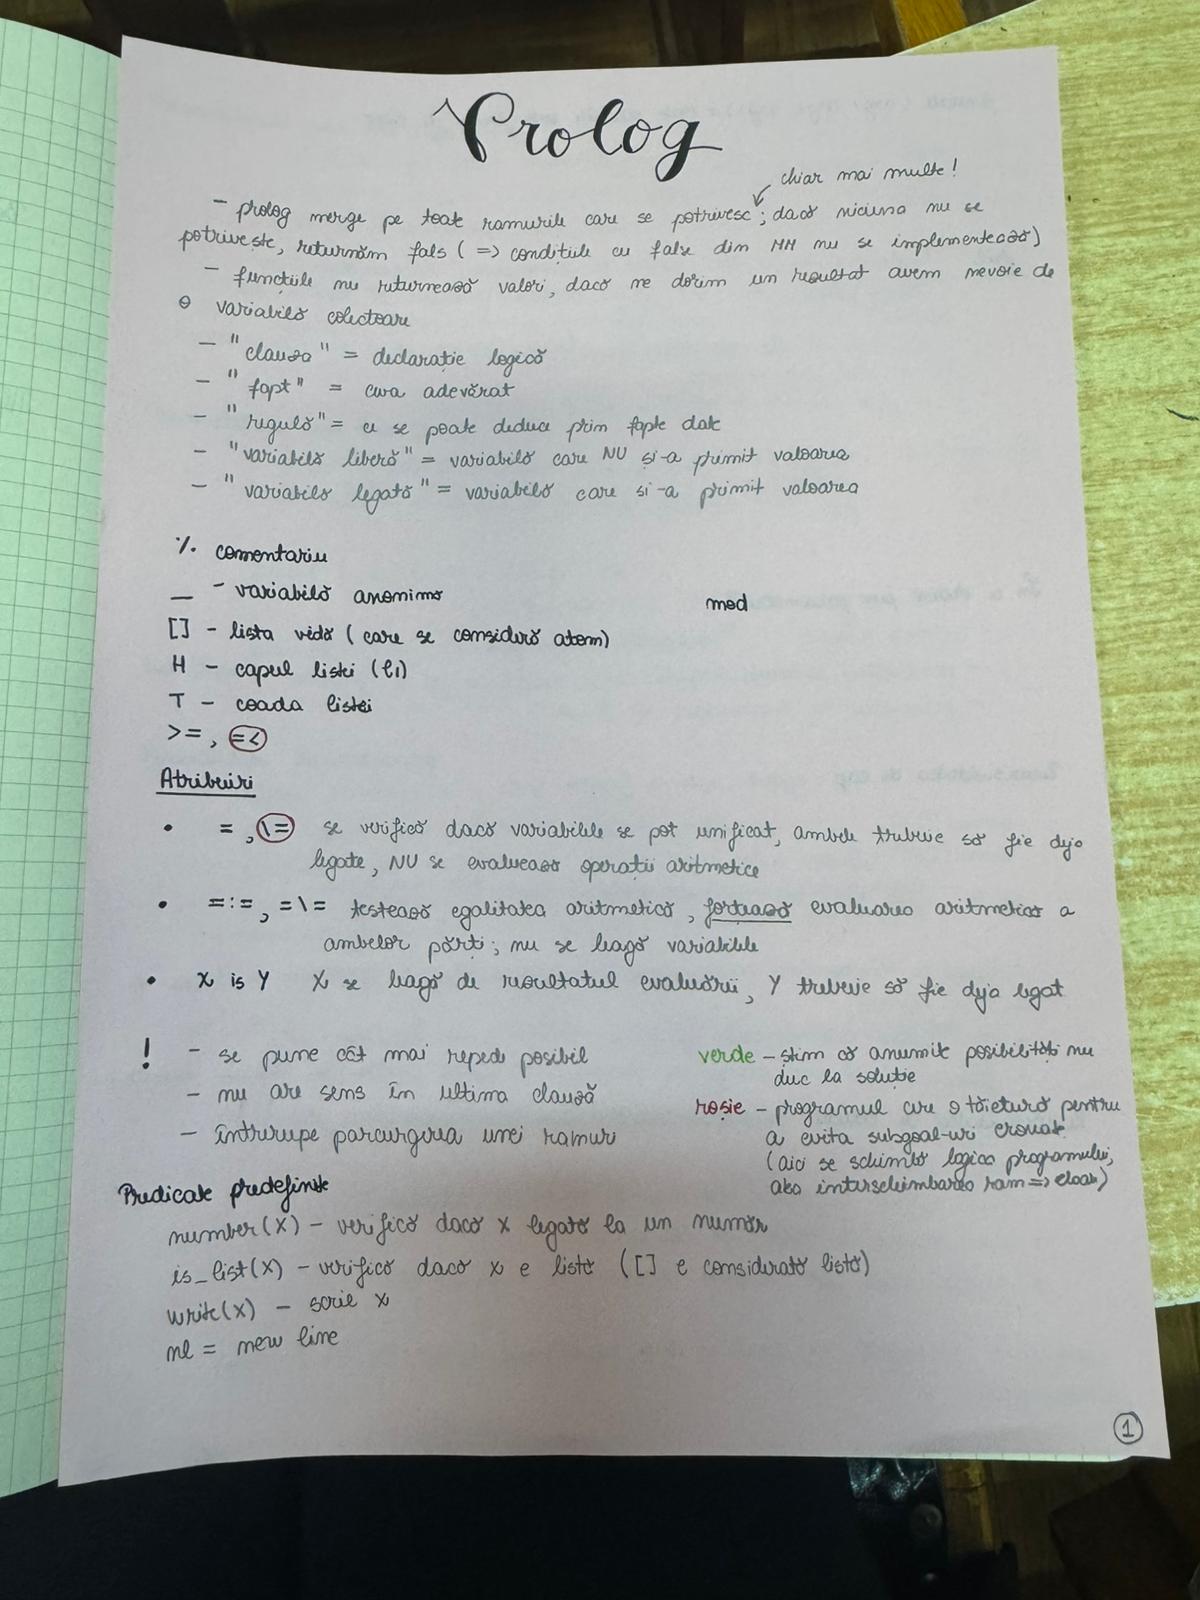 Prolog
chiar mai multe!
- prolog merge pe toate ramurile care se potrivesc; dacă niciuna nu se
potrivește, returnăm fals (=> condițiile cu false din MM nu se implementează)
- funcțiile nu returnează valori, dacă ne dorim un rezultat avem nevoie de
o variabilă colectoare
- "clauza" = declarație logică
- "fapt" = ceva adevărat
- "regulă" = ce se poate deduce prin fapte date
- "variabilă liberă" = variabilă care NU și-a primit valoarea
- "variabilă legată" = variabilă care și-a primit valoarea
% comentariu
_ - variabilă anonimă
mod
[] - lista vidă (care se consideră atom)
H - capul listei (l1)
T - coada listei
>=, =<
Atribuiri
• =, \= se verifică dacă variabilele se pot unificat, ambele trebuie să fie deja
legate, NU se evaluează operații aritmetice
• =:=, =\= testează egalitatea aritmetică, forțează evaluarea aritmetică a
ambelor părți; nu se leagă variabilele
• X is Y X se leagă de rezultatul evaluării, Y trebuie să fie deja legat
! - se pune cât mai repede posibil
- nu are sens în ultima clauză
- întrerupe parcurgerea unei ramuri
verde - știm că anumite posibilități nu
duc la soluție
roșie - programul are o tăietură pentru
a evita subgoal-uri eronate
(aici se schimbă logica programului,
aka interschimbarea ram => )
Predicate predefinite
number(X) - verifică dacă x legată la un număr
is_list(X) - verifică dacă x e listă ([] e considerată listă)
write(X) - scrie x
nl = new line
1